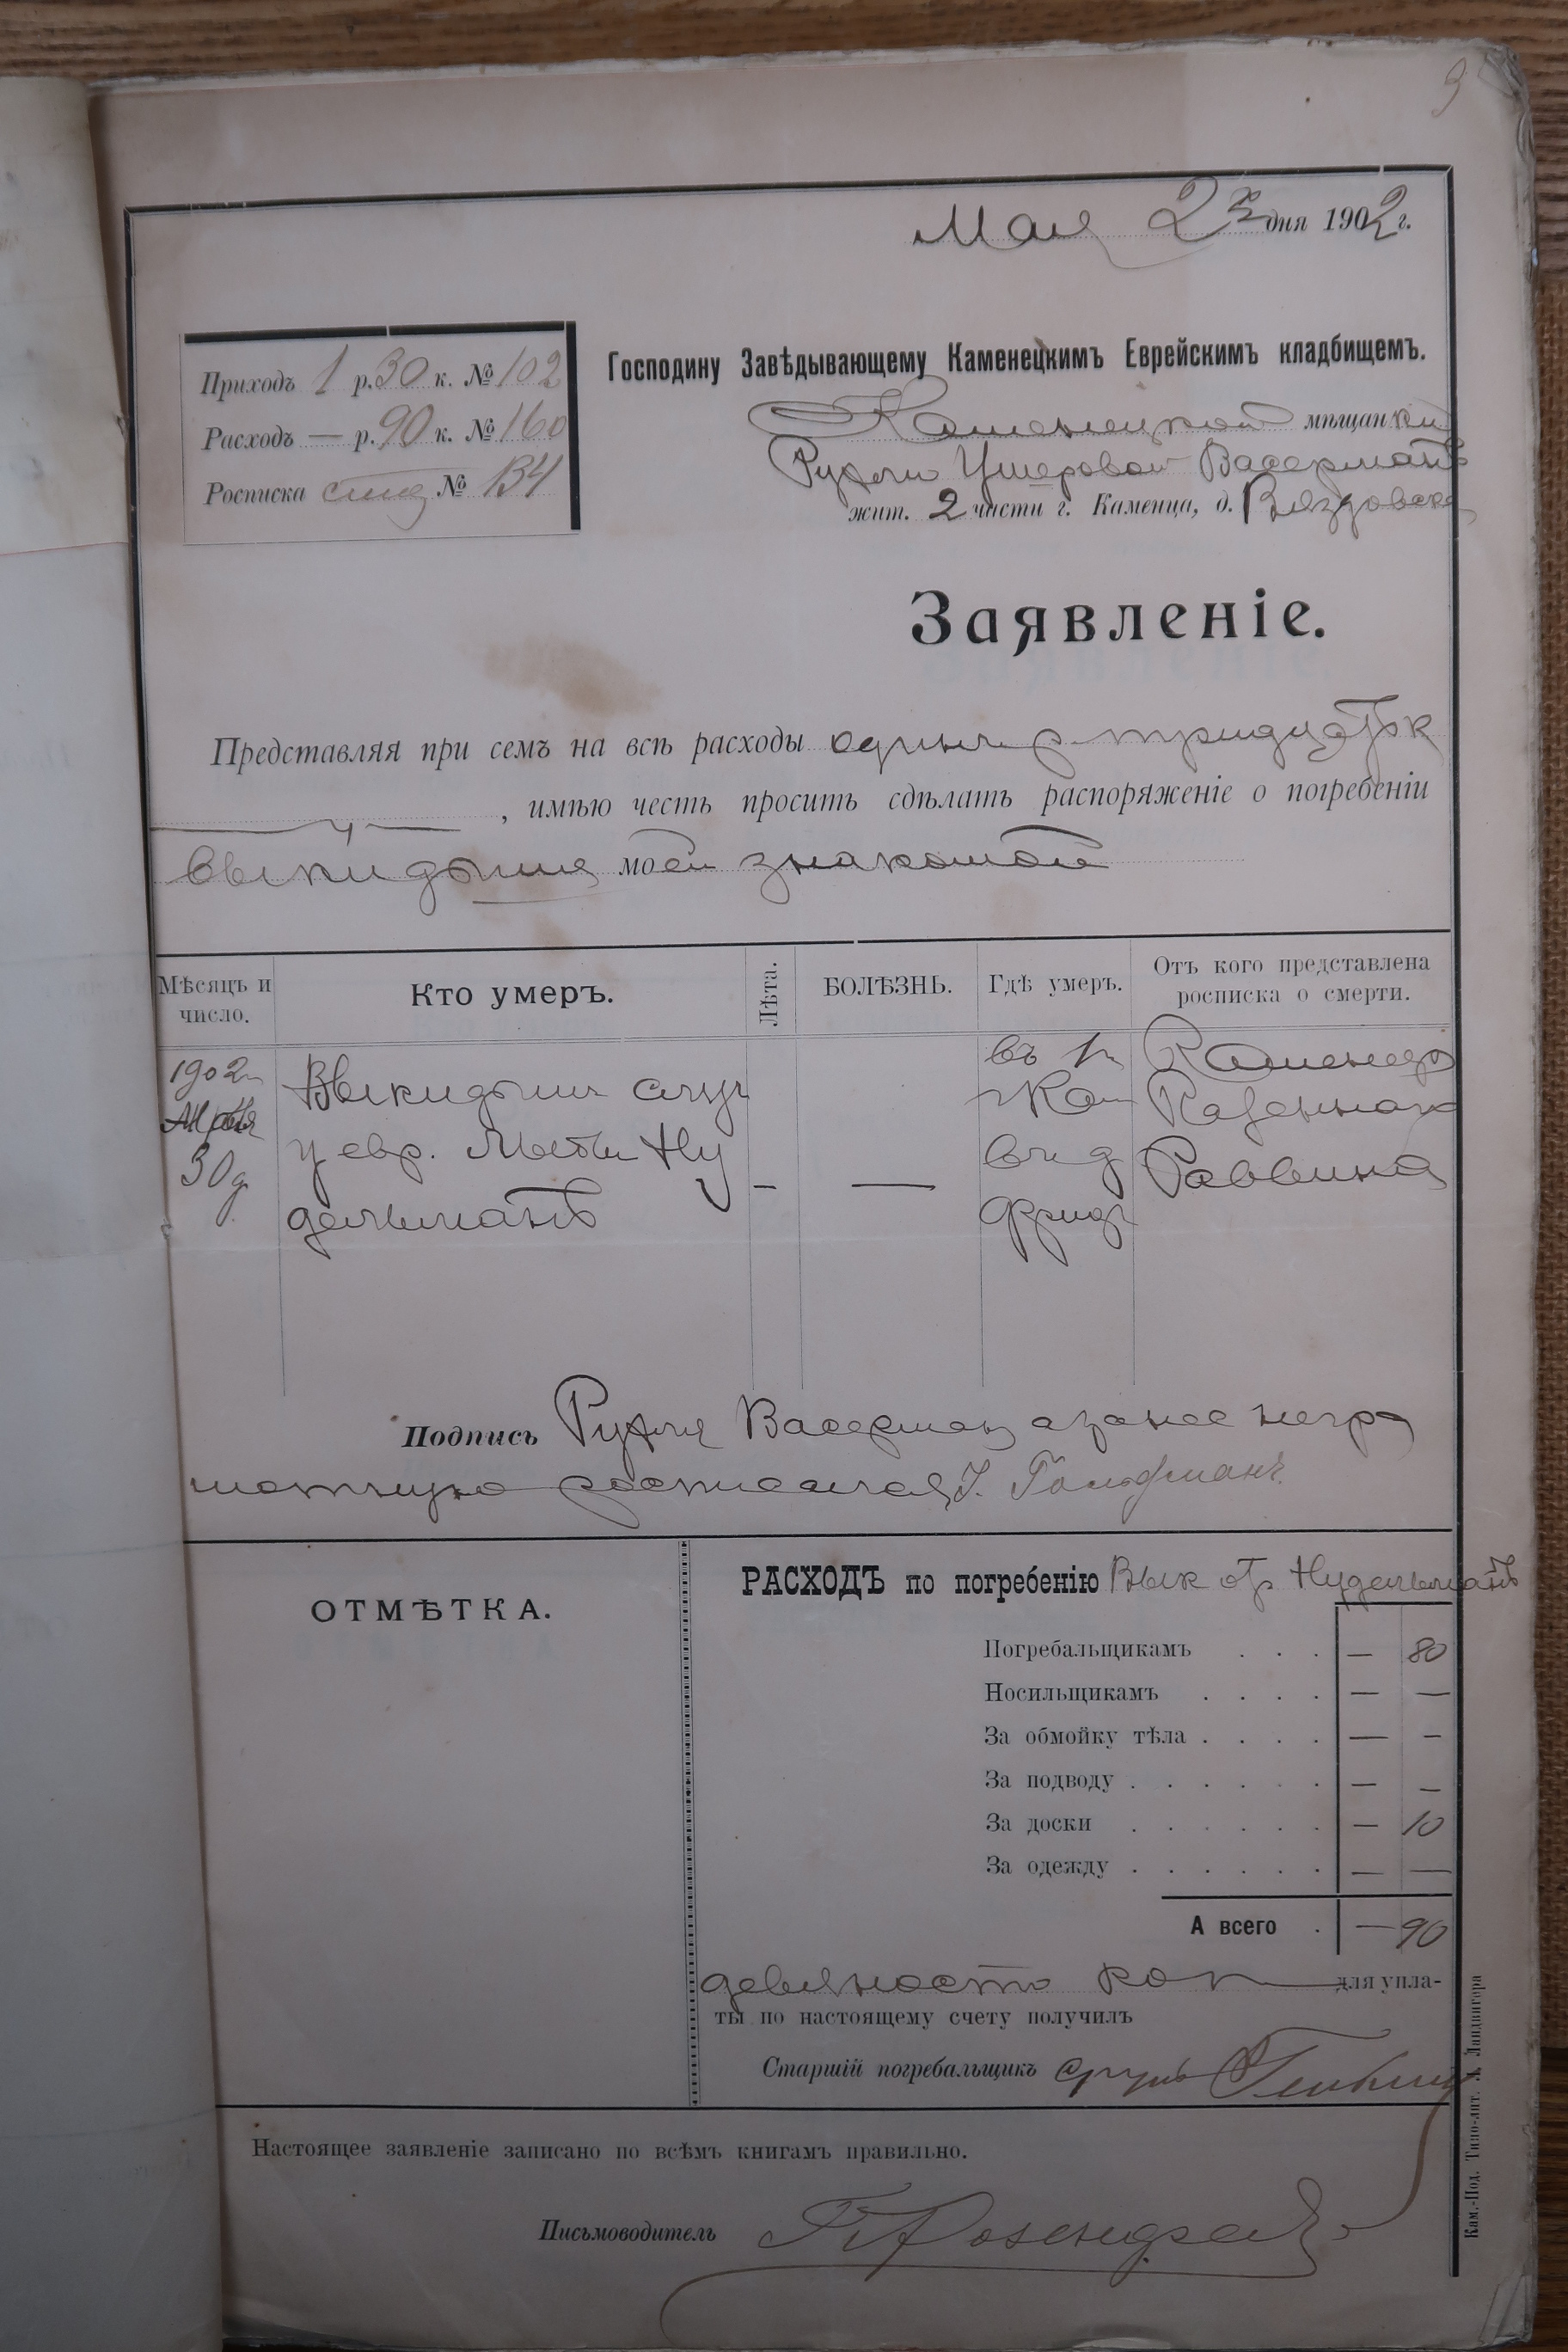 9
Мая 2го дня 1902 г.
Приходъ 1 р. 30 к. № 102
Расходъ — р. 90 к. № 160
Росписка № 134
Господину Завѣдывающему Каменецкимъ Еврейскимъ кладбищемъ.
Каменецкой мѣщанки
Рухли Ушеровой Васерманъ
жит. 2 части г. Каменца, д.
Заявленіе.
Представляя при семъ на всѣ расходы одинъ р тридцать к
, имѣю честь просить сдѣлать распоряженіе о погребеніи
выкидыша моей знакомой
Мѣсяцъ и число.
Кто умеръ.
Лѣта.
БОЛѢЗНЬ.
Гдѣ умеръ.
Отъ кого представлена росписка о смерти.
1902
Апрѣля
30 д.
Выкидышъ
у евр. Ну
дельманъ
—
—
въ г
Кам
въ д
Фридг
Каменецк
Казеннаго
Раввина
Подпись Рухля Васерман а за нее негра
мотную росписался Гольдманъ
ОТМѢТКА.
РАСХОДЪ по погребенію Вык от Нудельманъ
Погребальщикамъ . . . — 80
Носильщикамъ . . . . — —
За обмойку тѣла . . . . — —
За подводу . . . . . . — —
За доски . . . . . . — 10
За одежду . . . . . . — —
А всего . — 90
девяносто коп для упла-
ты по настоящему счету получилъ
Старшій погребальщикъ
Настоящее заявленіе записано по всѣмъ книгамъ правильно.
Письмоводитель
Кам.-Под. Типо-лит. А. Ландвигера